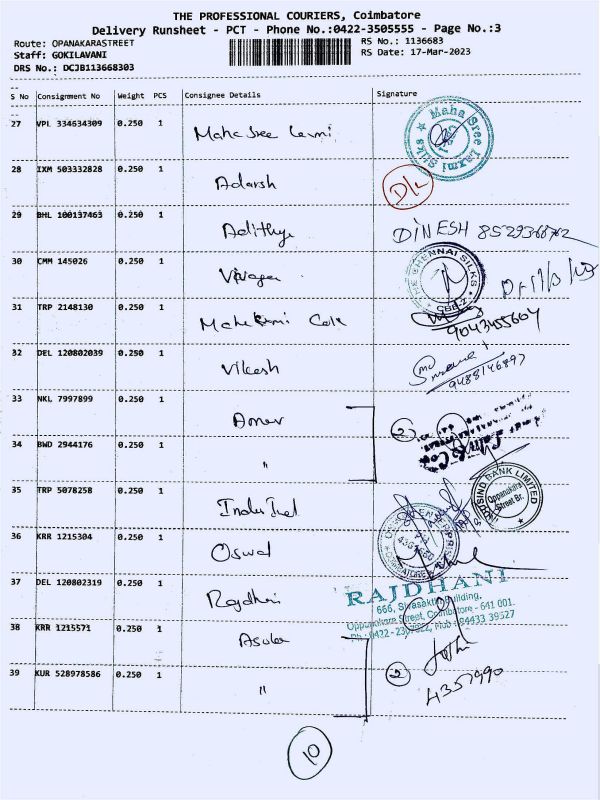 THE PROFESSIONAL COURIERS, Coimbatore
Delivery Runsheet - PCT - Phone No.:0422-3505555 - Page No.:3
Route: OPANAKARASTREET RS No.: 1136683
Staff: GOKILAVANI RS Date: 17-Mar-2023
DRS No.: DCJB113668303
S No Consignment No Weight PCS Consignee Details Signature
27 VPL 334634309 0.250 1 Maha Sree Laxmi Maha Sree Laxmi Silks
28 IXM 503332828 0.250 1 Adarsh D/L
29 BHL 100137463 0.250 1 Adithya DINESH 8529368762
30 CMM 145026 0.250 1 THE CHENNAI SILKS CBE-2
31 TRP 2148130 0.250 1 9043455664
32 DEL 120802039 0.250 1 Vikash 9488146897
33 NKL 7997899 0.250 1 2
34 BWD 2944176 0.250 1 "
35 TRP 5078258 0.250 1 INDUSIND BANK LIMITED Oppanakara Street Br.
36 KRR 1215304 0.250 1 Oswal
37 DEL 120802319 0.250 1 Rajdhani RAJDHANI
666, Sivasakthi Building,
Oppanakara Street, Coimbatore - 641 001.
38 KRR 1215571 0.250 1
39 KUR 528978586 0.250 1 " 2 4357990
10